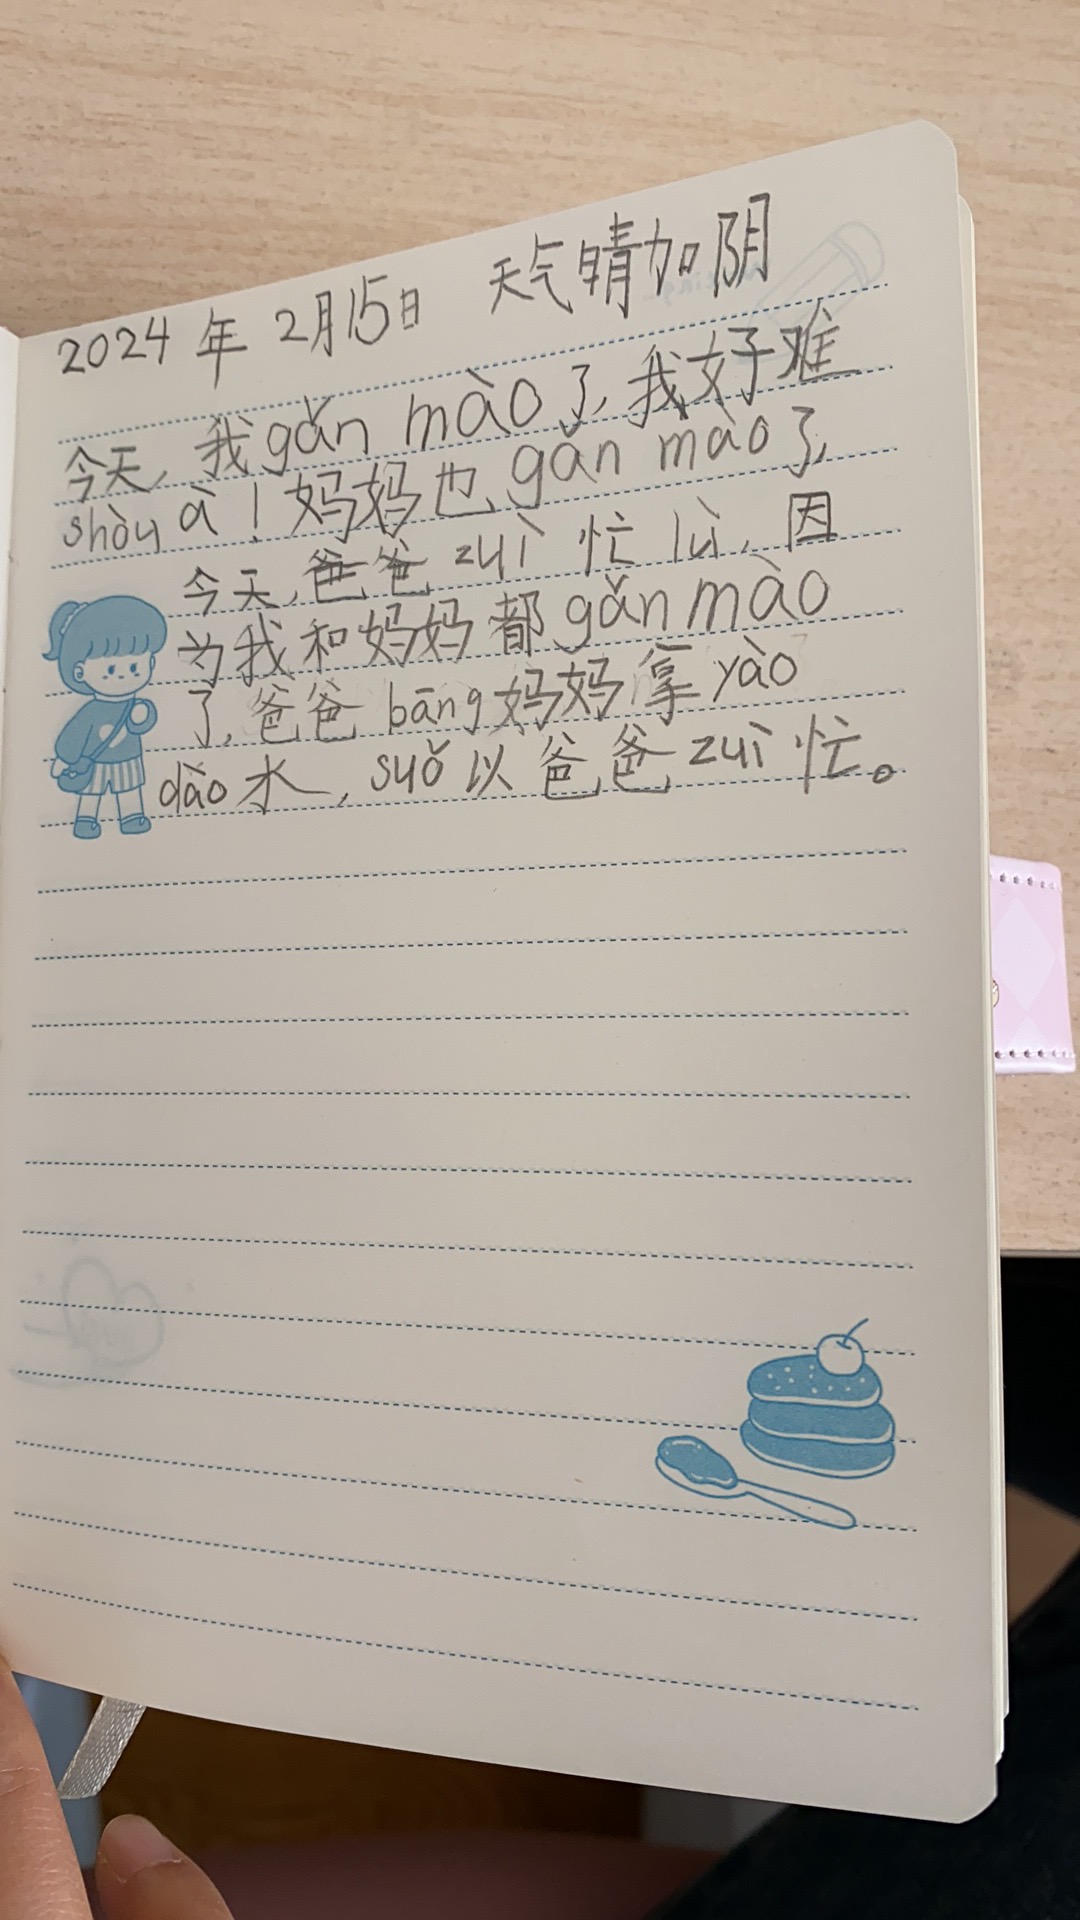 2024年 2月15日 天气晴加阴
今天,我gǎn mào了,我好难
shòu à!妈妈也gǎn mào了,
今天,爸爸zuì忙lù,因
为我和妈妈都gǎn mào
了,爸爸bāng妈妈拿yào
dào水,suǒ以爸爸zuì忙。